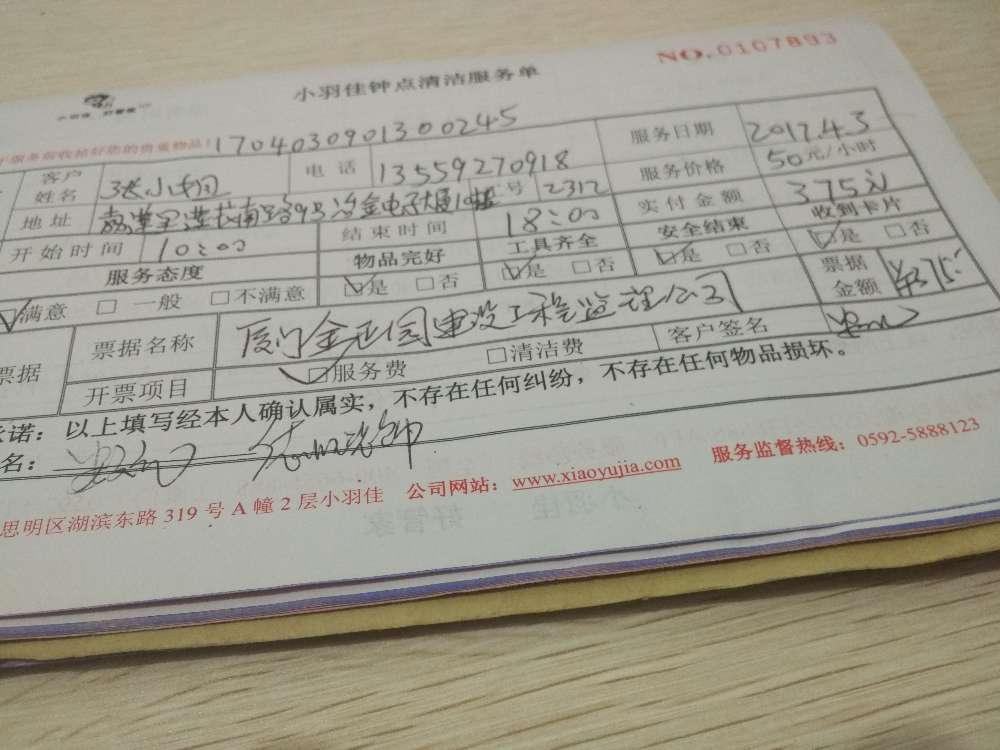 NO.0107893
小羽佳钟点清洁服务单
小羽佳 好管家
服务前收拾好您的贵重物品! 1704030901300245
客户姓名 张小姐 电话 13559270918 服务日期 2017.4.3
地址 9号冶金电子大厦 号 2312 服务价格 50元/小时
开始时间 10:00 结束时间 18:00 实付金额 375元
服务态度 物品完好 工具齐全 安全结束 收到卡片
☑满意 □一般 □不满意 ☑是 □否 ☑是 □否 ☑是 □否 ☑是 □否
票据 票据名称 厦门金正园建设工程监理公司 票据金额 ¥375
开票项目 ☑服务费 □清洁费 客户签名
承诺：以上填写经本人确认属实，不存在任何纠纷，不存在任何物品损坏。
名：
思明区湖滨东路319号A幢2层小羽佳 公司网站：www.xiaoyujia.com 服务监督热线：0592-5888123